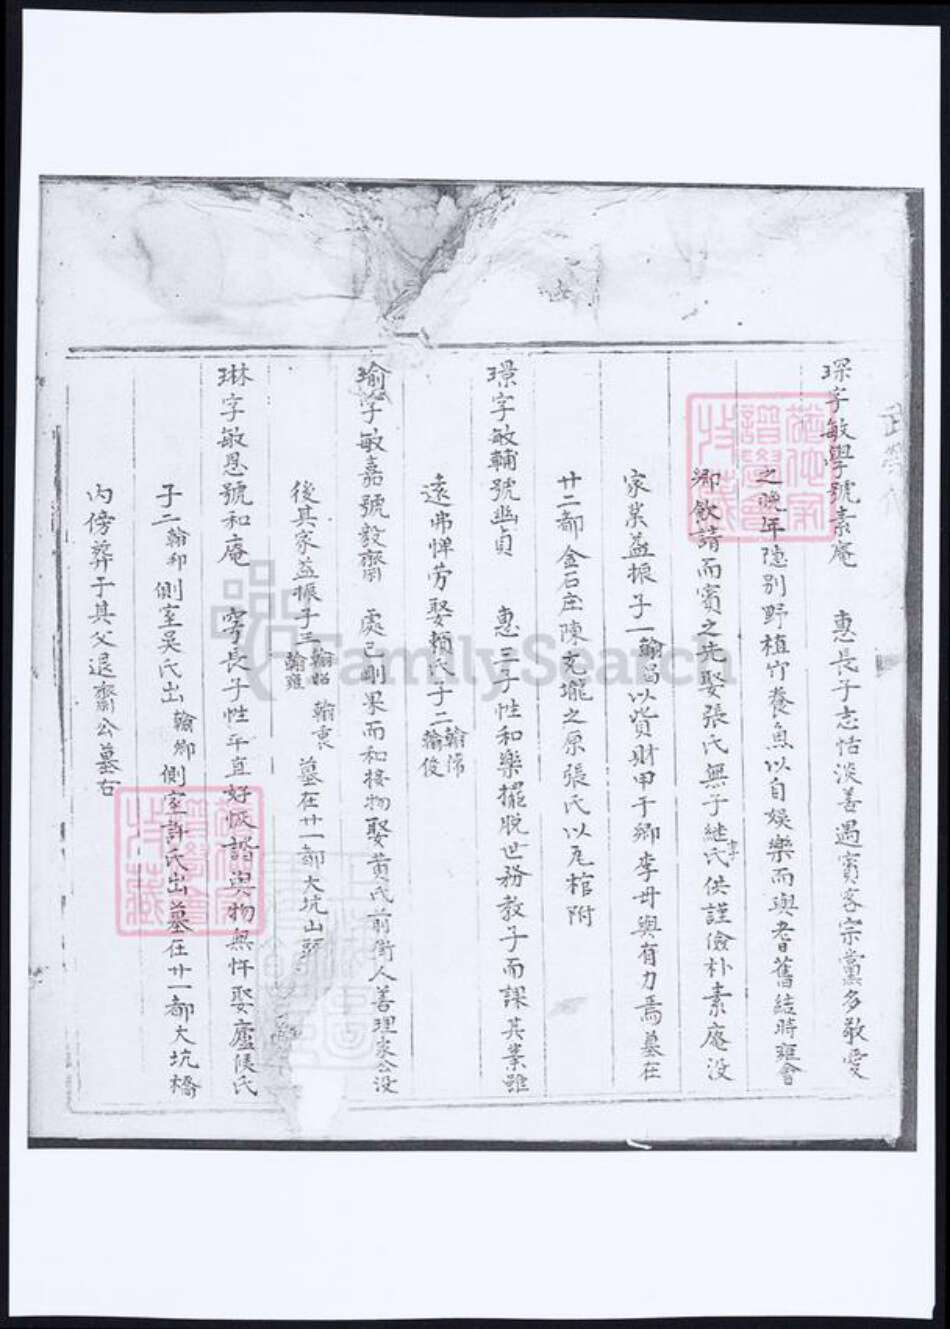 琛字敏學號素庵 惠長子志恬淡善遇賓客宗黨多敬愛
之晚年隱別野植竹養魚以自娛樂而與耆舊結時雍會
鄉飲請而賓之先娶張氏無子継李氏供謹儉朴素庵没
家業益振子一翰昌以貲財甲于鄉李毋與有力焉墓在
廿二都金石庄陳文壠之原張氏以瓦棺附
璟字敏輔號幽貞 惠三子性和樂擺脱世務教子而課其業雖
遠弗憚勞娶賴氏子二翰 翰俊
瑜字敏嘉號毅齋 處己剛果而和接物娶黃氏前衛人善理家公没
後其家益振子三翰韶 翰雍 翰 墓在廿一都大坑山
琳字敏恩號和庵 穹長子性平直好恢諧與物無忤娶盧侯氏
子二翰 側室吳氏出 翰卿側室許氏出墓在廿一都大坑橋
内傍葬于其父退齋公墓右
FamilySearch